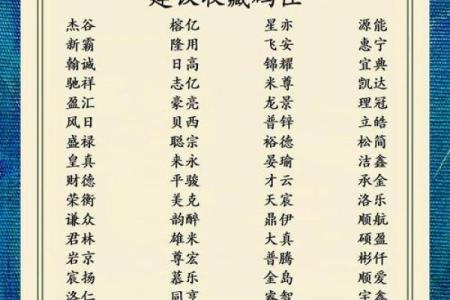 建议收藏码住
杰谷 榕亿 星亦 源能
新霸 隆用 飞安 惠宁
翰诚 日高 锦耀 宜典
驰祥 志亿 米尊 凯达
盈汇 豪亮 龙景 理冠
风日 贝西 普锌 立皓
盛禄 聪宗 裕德 松简
皇真 来永 晏瑜 洁鑫
财德 平骏 才云 承金
荣衡 美克 天宸 洛乐
谦众 韵醉 鼎伊 顺航
君林 雄米 大真 硕盈
岩京 尊宏 普腾 彬仟
宸扬 慕乐 金岛 顺爱
洛仁 同亨 睿智 宝鑫